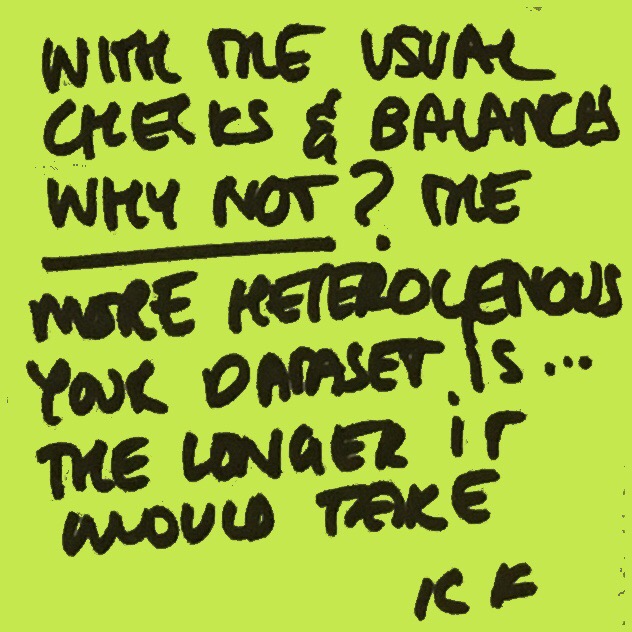 WITH THE USUAL
CHECKS & BALANCES
WHY NOT? THE
MORE HETEROGENOUS
YOUR DATASET IS...
THE LONGER IT
WOULD TAKE
KF